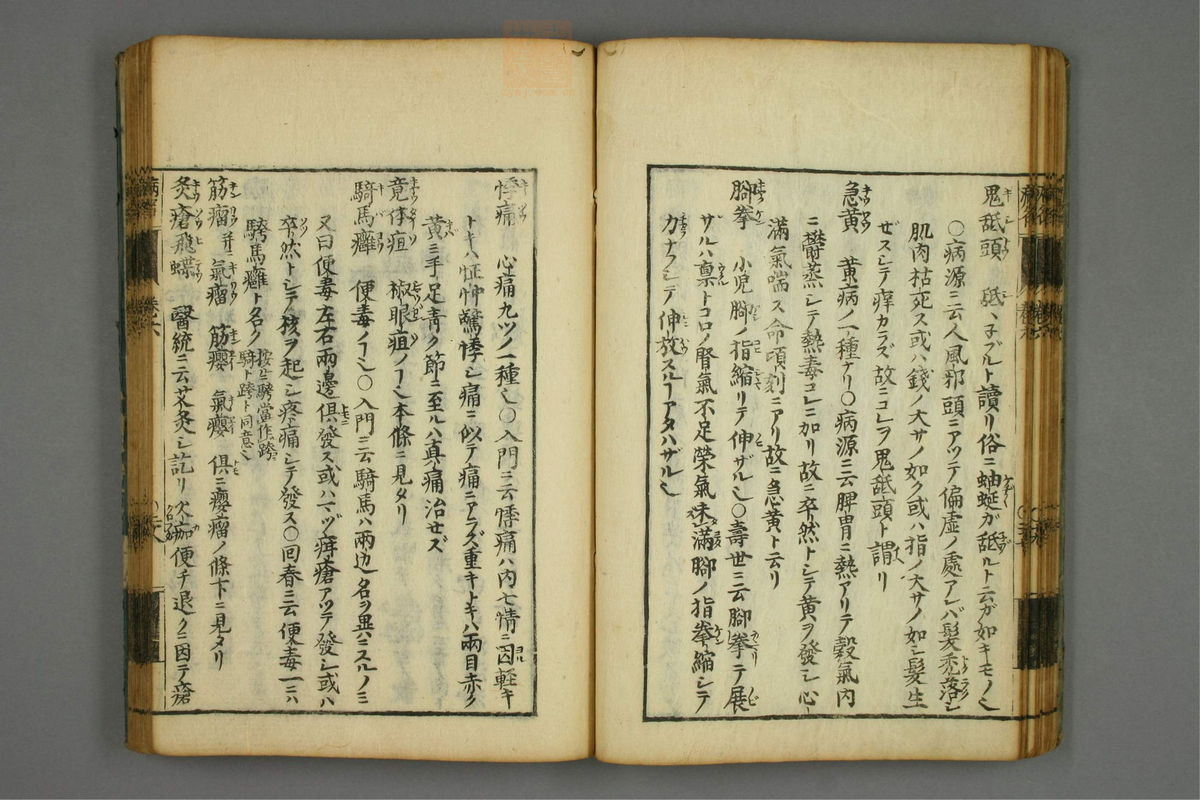 鬼舐頭 舐ハ子ブルト讀リ俗ニ蚰蜒ガ舐ルト云ガ如キモノ乄
〇病源ニ云人風邪頭ニアツテ偏虚ノ處アレバ髪禿落シ
肌肉枯死ス或ハ錢ノ大サノ如ク或ハ指ノ大サノ如シ髪生
ゼスシテ痒カラズ故ニコレヲ鬼舐頭ト謂リ
急黄 黄病ノ一種ナリ〇病源ニ云脾胃ニ熱アリテ穀氣内
ニ鬱蒸シテ熱毒コレニ加リ故ニ卒然トシテ黄ヲ發シ心
滿氣喘ス命頃刻ニアリ故ニ急黄ト云リ
脚拳 小児脚ノ指縮リテ伸ザル也〇壽世ニ云脚拳テ展
ザルハ禀トコロノ腎氣不足榮氣未滿脚ノ指拳縮シテ
カナラシテ伸放スルヿアタハザル也
悸痛 心痛九ツノ一種也〇入門ニ云悸痛ハ内七情ニ因軽キ
トキハ怔忡驚悸シ痛ニ似テ痛ニアラズ重キトキハ兩目赤ク
黄ニ手足青ク節ニ至ルハ真痛治セズ
竟体疽 椒眼疽ノヿ也本條ニ見タリ
騎馬癰 便毒ノヿ也〇入門ニ云騎馬ハ兩边名ヲ異ニスルノミ
又曰便毒左右兩邊倶發ス或ハ一マヅ疳瘡アツテ發シ或ハ
卒然トシテ核ヲ起シ疼痛シテ發ス〇回春ニ云便毒一ニハ
騎馬癰ト名ク 按ニ騎當作跨 騎ト跨ト同意也
筋瘤并ニ氣瘤 筋癭 氣癭 倶ニ癭瘤ノ條下ニ見タリ
灸瘡飛蝶 醫統ニ云艾灸シ訖リ火痂便チ退クニ因テ瘡